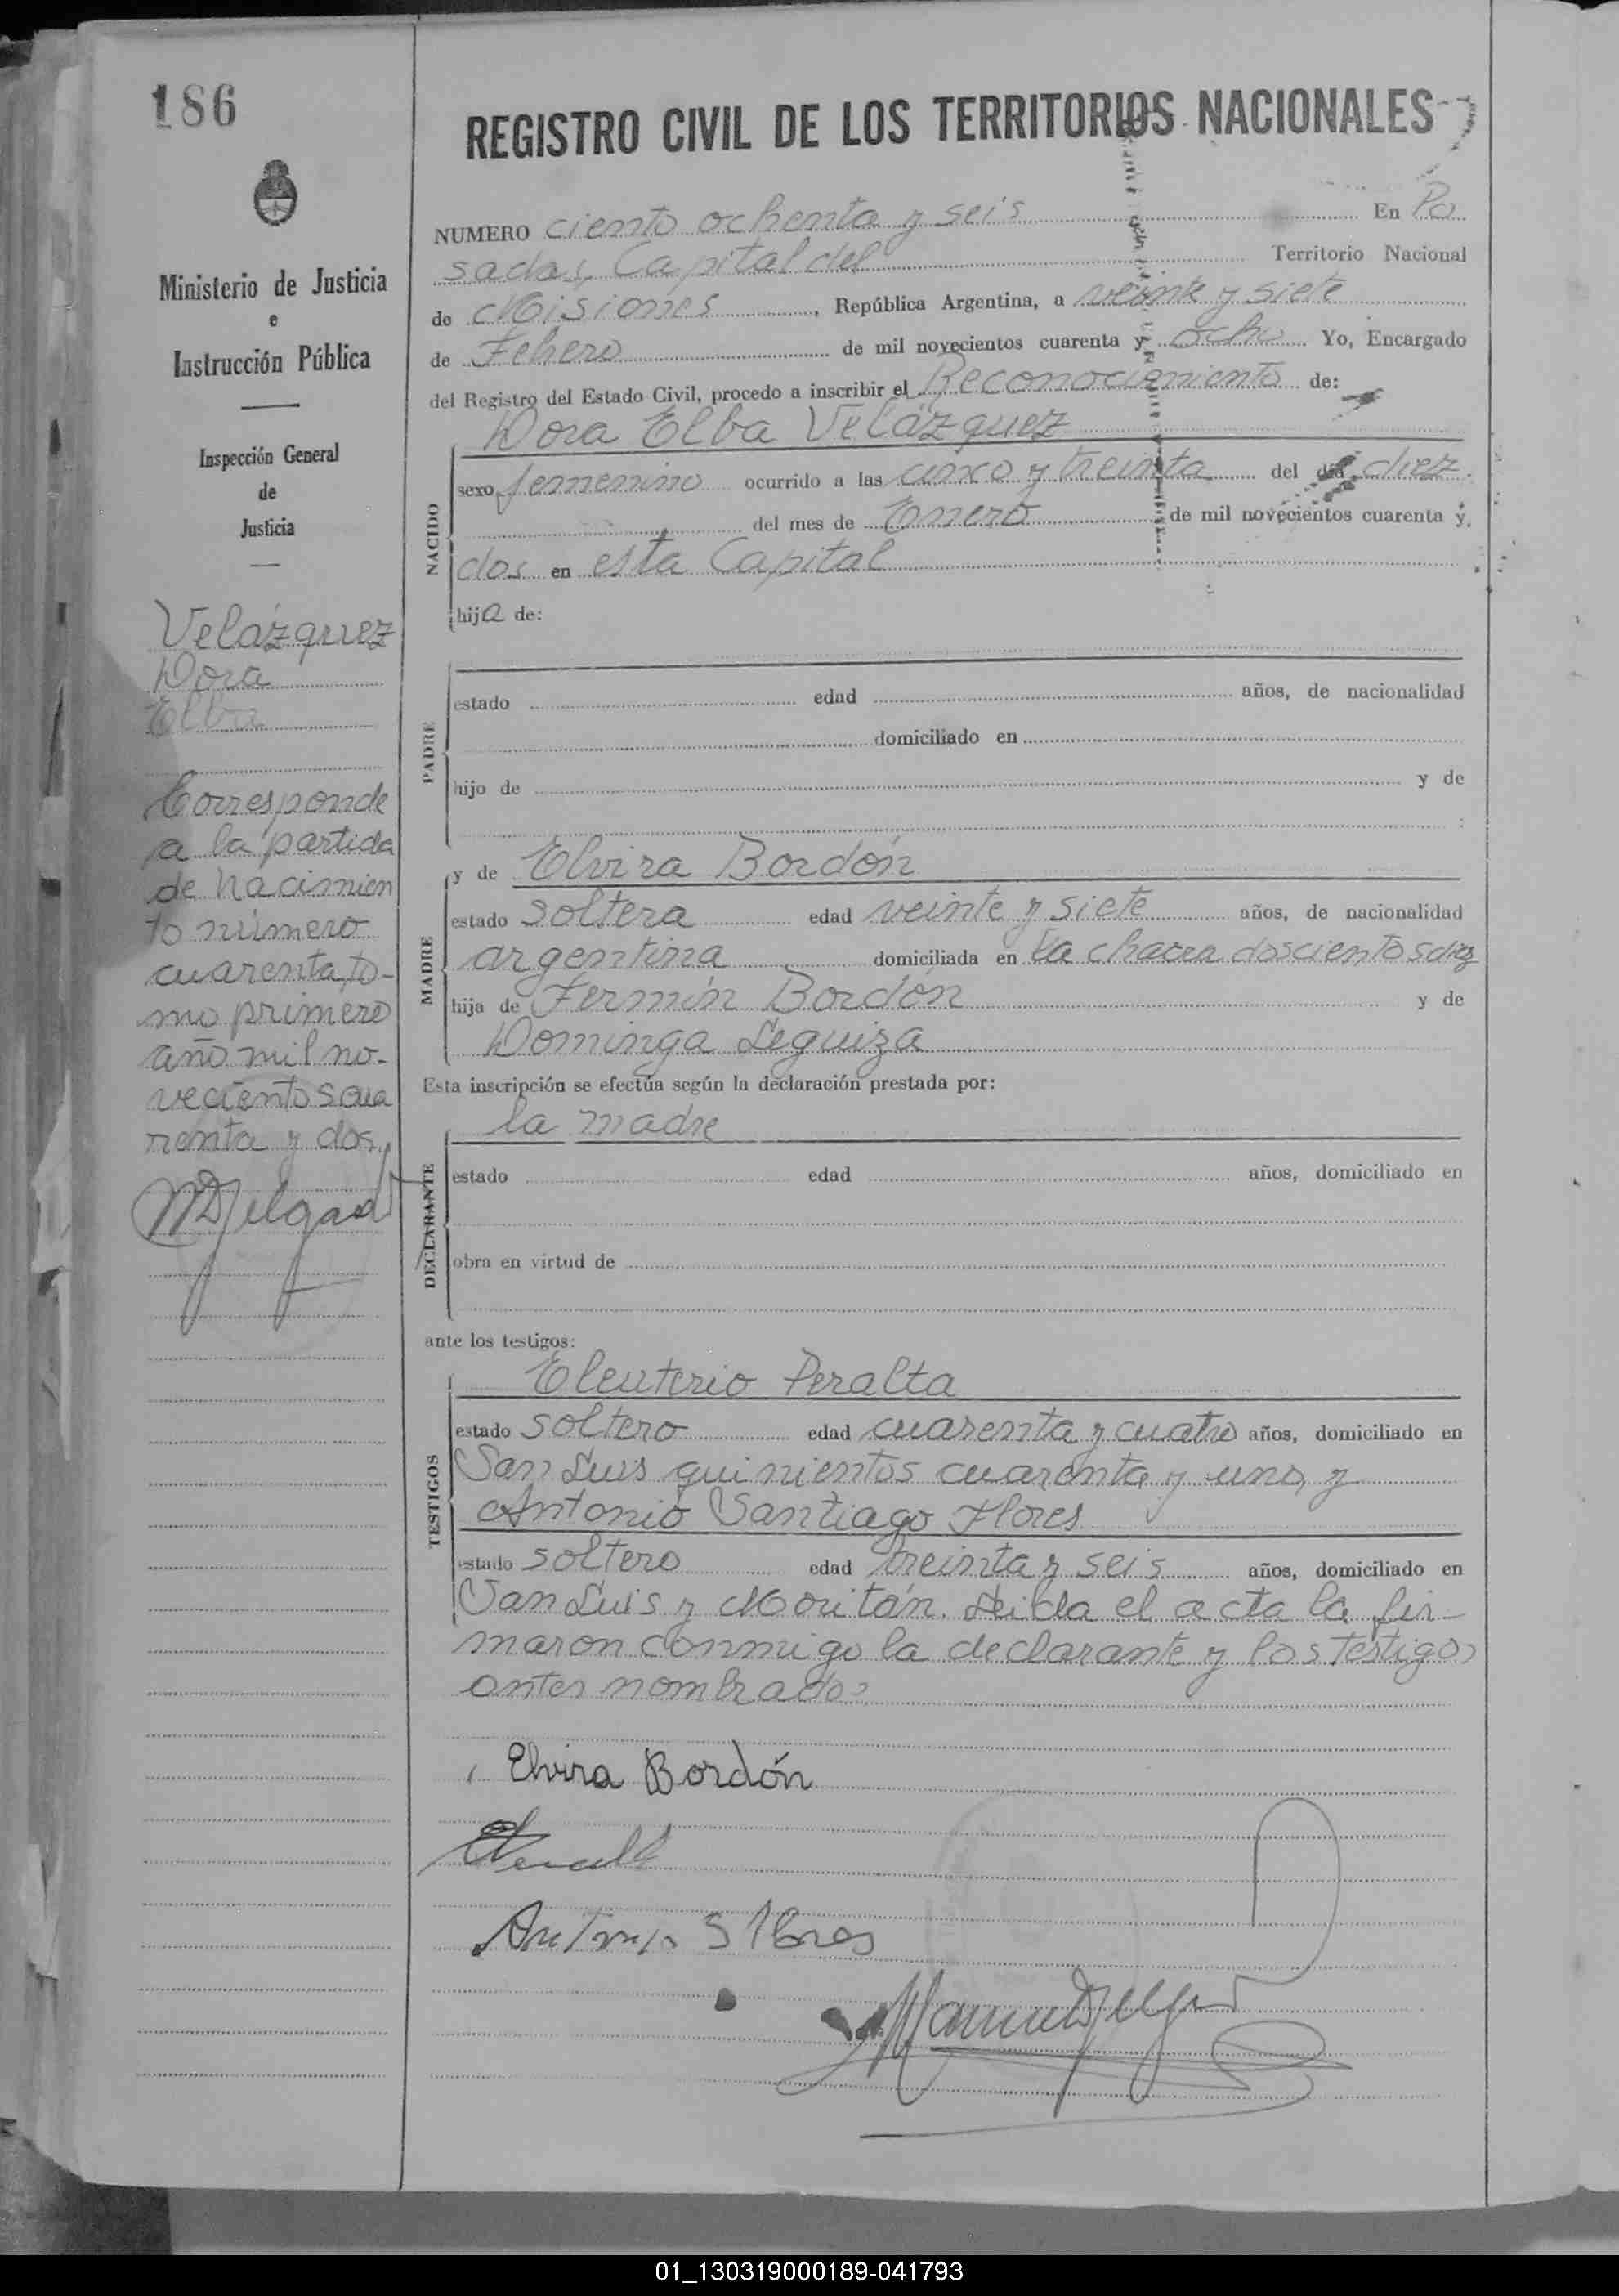 186
REGISTRO CIVIL DE LOS TERRITORIOS NACIONALES
Ministerio de Justicia
e
Instrucción Pública
Inspección General
de
Justicia
Velázquez
Dora
Elba
Corresponde
a la partida
de nacimien
to número
cuarenta, to-
mo primero
año mil no-
vecientos cua
renta y dos.
MDelgad
NUMERO ciento ochenta y seis En Po
sadas, Capital del Territorio Nacional
de Misiones, República Argentina, a veinte y siete
de Febrero de mil novecientos cuarenta y ocho Yo, Encargado
del Registro del Estado Civil, procedo a inscribir el Reconocimiento de:
Dora Elba Velázquez
NACIDO
sexo femenino ocurrido a las cinco y treinta del día diez
del mes de Enero de mil novecientos cuarenta y
dos en esta Capital
hija de:
PADRE
estado edad años, de nacionalidad
domiciliado en
hijo de y de
MADRE
y de Elvira Bordón
estado soltera edad veinte y siete años, de nacionalidad
argentina domiciliada en la chacra doscientos diez
hija de Fermín Bordón y de
Dominga Leguiza
Esta inscripción se efectúa según la declaración prestada por:
la madre
DECLARANTE
estado edad años, domiciliado en
obra en virtud de
ante los testigos:
TESTIGOS
Eleuterio Peralta
estado soltero edad cuarenta y cuatro años, domiciliado en
San Luis quinientos cuarenta y uno, y
Antonio Santiago Flores
estado soltero edad treinta y seis años, domiciliado en
San Luis y Moritán. Leida el acta la fir-
maron conmigo la declarante y los testigos
antes nombrados
Elvira Bordón
EPeralt
Antonio S Flores
Manuel Delgad
01_130319000189-041793